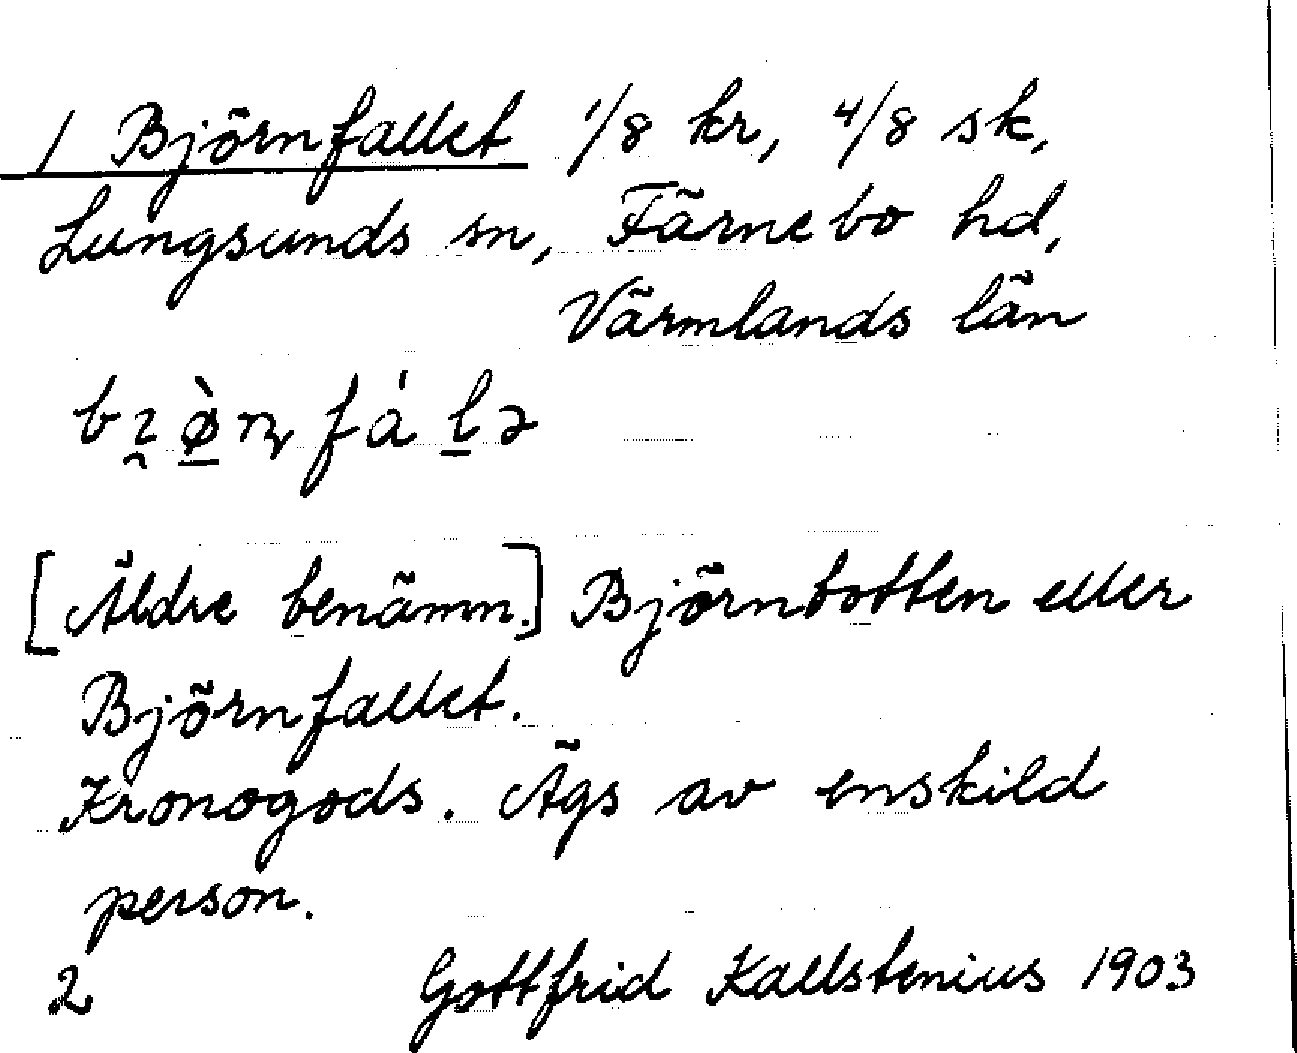 1 Björnfallet 1/8 kr, 4/8 sk,
Lungsunds sn, Färnebo hd,
Värmlands län
[Äldre benämn.] Björntotten eller
Björnfallet.
Kronogods. Ägs av enskild
person.
2 Gottfrid Kallstenius 1903